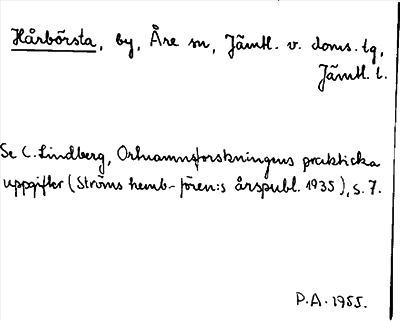 Hårbörsta, by, Åre sn, Jämtl. v. doms. tg,
Jämtl. l.
Se C. Lindberg, Ortnamnsforskningens praktiska
uppgifter (Ströms hemb-fören:s årspubl. 1935), s. 7.
P.A. 1955.